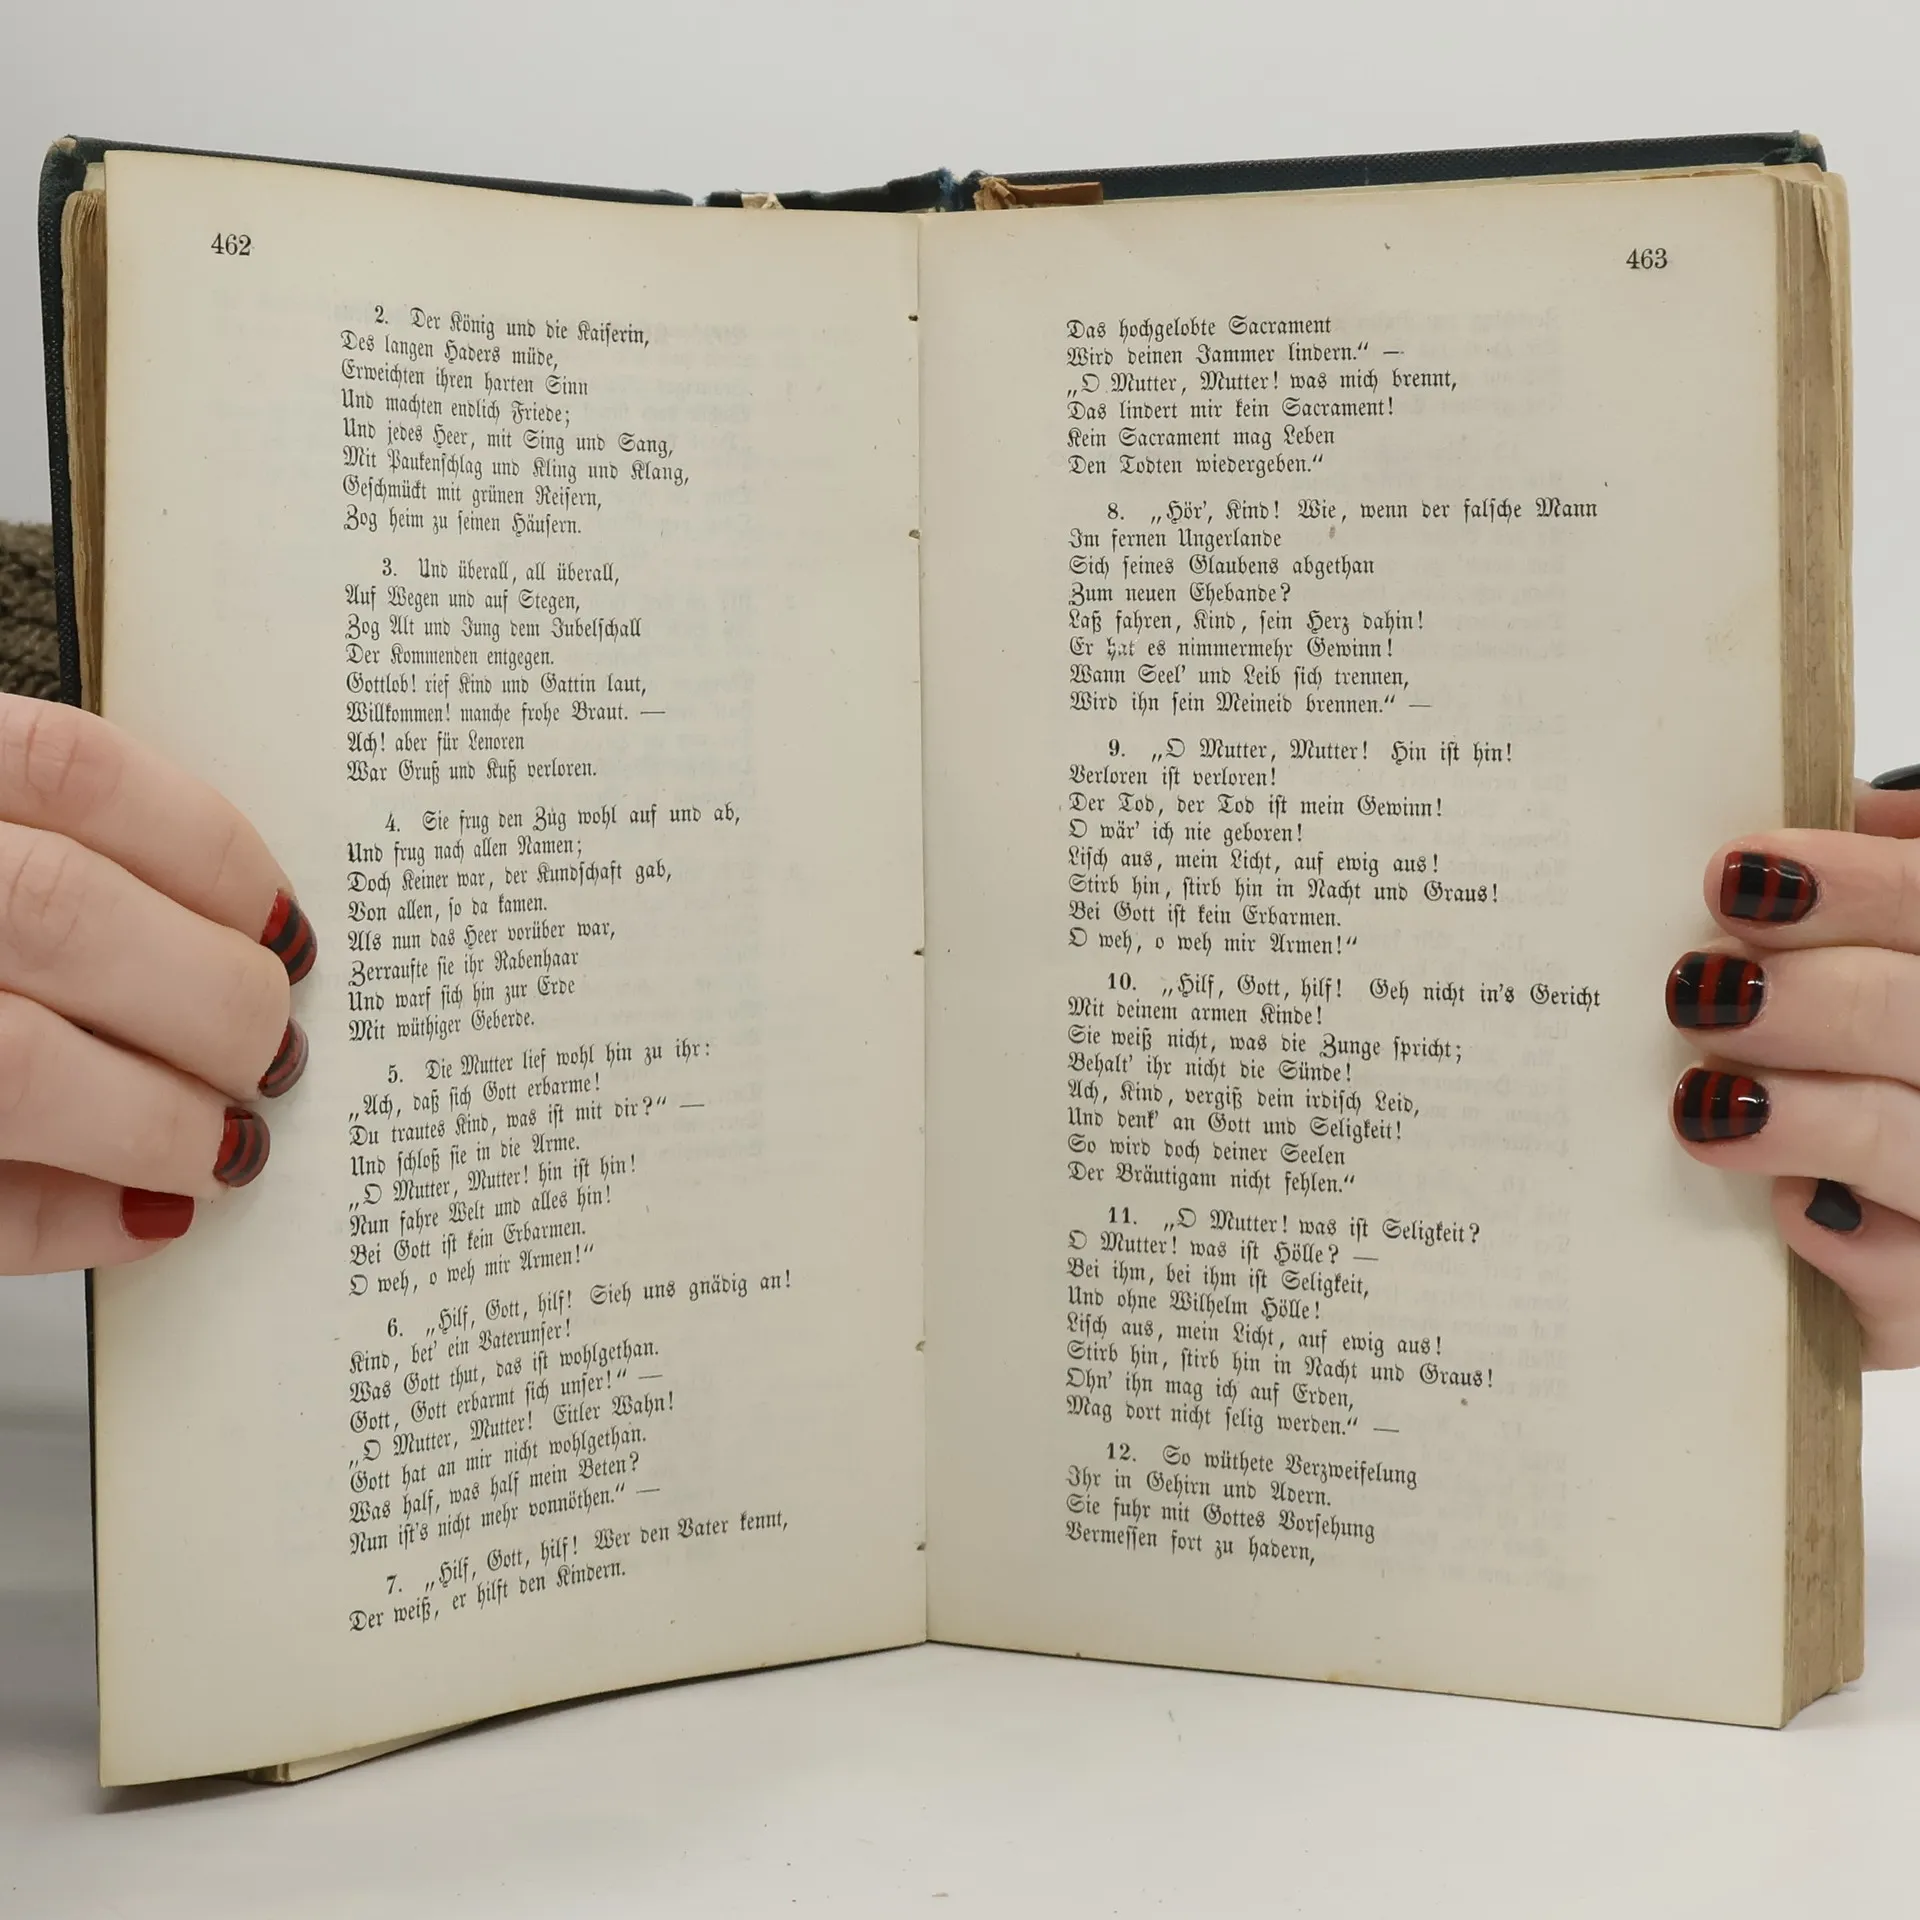 462
2. Der König und die Kaiserin,
Des langen Haders müde,
Erweichten ihren harten Sinn
Und machten endlich Friede;
Und jedes Heer, mit Sing und Sang,
Mit Paukenschlag und Kling und Klang,
Geschmückt mit grünen Reisern,
Zog heim zu seinen Häusern.
3. Und überall, all überall,
Auf Wegen und auf Stegen,
Zog Alt und Jung dem Jubelschall
Der Kommenden entgegen.
Gottlob! rief Kind und Gattin laut,
Willkommen! manche frohe Braut. —
Ach! aber für Lenoren
War Gruß und Kuß verloren.
4. Sie frug den Zug wohl auf und ab,
Und frug nach allen Namen;
Doch Keiner war, der Kundschaft gab,
Von allen, so da kamen.
Als nun das Heer vorüber war,
Zerraufte sie ihr Rabenhaar
Und warf sich hin zur Erde
Mit wüthiger Geberde.
5. Die Mutter lief wohl hin zu ihr:
„Ach, daß sich Gott erbarme!
Du trautes Kind, was ist mit dir?“ —
Und schloß sie in die Arme.
„O Mutter, Mutter! hin ist hin!
Nun fahre Welt und alles hin!
Bei Gott ist kein Erbarmen.
O weh, o weh mir Armen!“
6. „Hilf, Gott, hilf! Sieh uns gnädig an!
Kind, bet' ein Vaterunser!
Was Gott thut, das ist wohlgethan.
Gott, Gott erbarmt sich unser!“ —
„O Mutter, Mutter! Eitler Wahn!
Gott hat an mir nicht wohlgethan.
Was half, was half mein Beten?
Nun ist's nicht mehr vonnöthen.“ —
7. „Hilf, Gott, hilf! Wer den Vater kennt,
Der weiß, er hilft den Kindern.
463
Das hochgelobte Sacrament
Wird deinen Jammer lindern.“ —
„O Mutter, Mutter! was mich brennt,
Das lindert mir kein Sacrament!
Kein Sacrament mag Leben
Den Todten wiedergeben.“
8. „Hör', Kind! Wie, wenn der falsche Mann
Im fernen Ungerlande
Sich seines Glaubens abgethan
Zum neuen Ehebande?
Laß fahren, Kind, sein Herz dahin!
Er hat es nimmermehr Gewinn!
Wann Seel' und Leib sich trennen,
Wird ihn sein Meineid brennen.“ —
9. „O Mutter, Mutter! Hin ist hin!
Verloren ist verloren!
Der Tod, der Tod ist mein Gewinn!
O wär' ich nie geboren!
Lisch aus, mein Licht, auf ewig aus!
Stirb hin, stirb hin in Nacht und Graus!
Bei Gott ist kein Erbarmen.
O weh, o weh mir Armen!“
10. „Hilf, Gott, hilf! Geh nicht in's Gericht
Mit deinem armen Kinde!
Sie weiß nicht, was die Zunge spricht;
Behalt' ihr nicht die Sünde!
Ach, Kind, vergiß dein irdisch Leid,
Und denk' an Gott und Seligkeit!
So wird doch deiner Seelen
Der Bräutigam nicht fehlen.“
11. „O Mutter! was ist Seligkeit?
O Mutter! was ist Hölle? —
Bei ihm, bei ihm ist Seligkeit,
Und ohne Wilhelm Hölle!
Lisch aus, mein Licht, auf ewig aus!
Stirb hin, stirb hin in Nacht und Graus!
Ohn' ihn mag ich auf Erden,
Mag dort nicht selig werden.“ —
12. So wüthete Verzweifelung
Ihr in Gehirn und Adern.
Sie fuhr mit Gottes Vorsehung
Vermessen fort zu hadern,